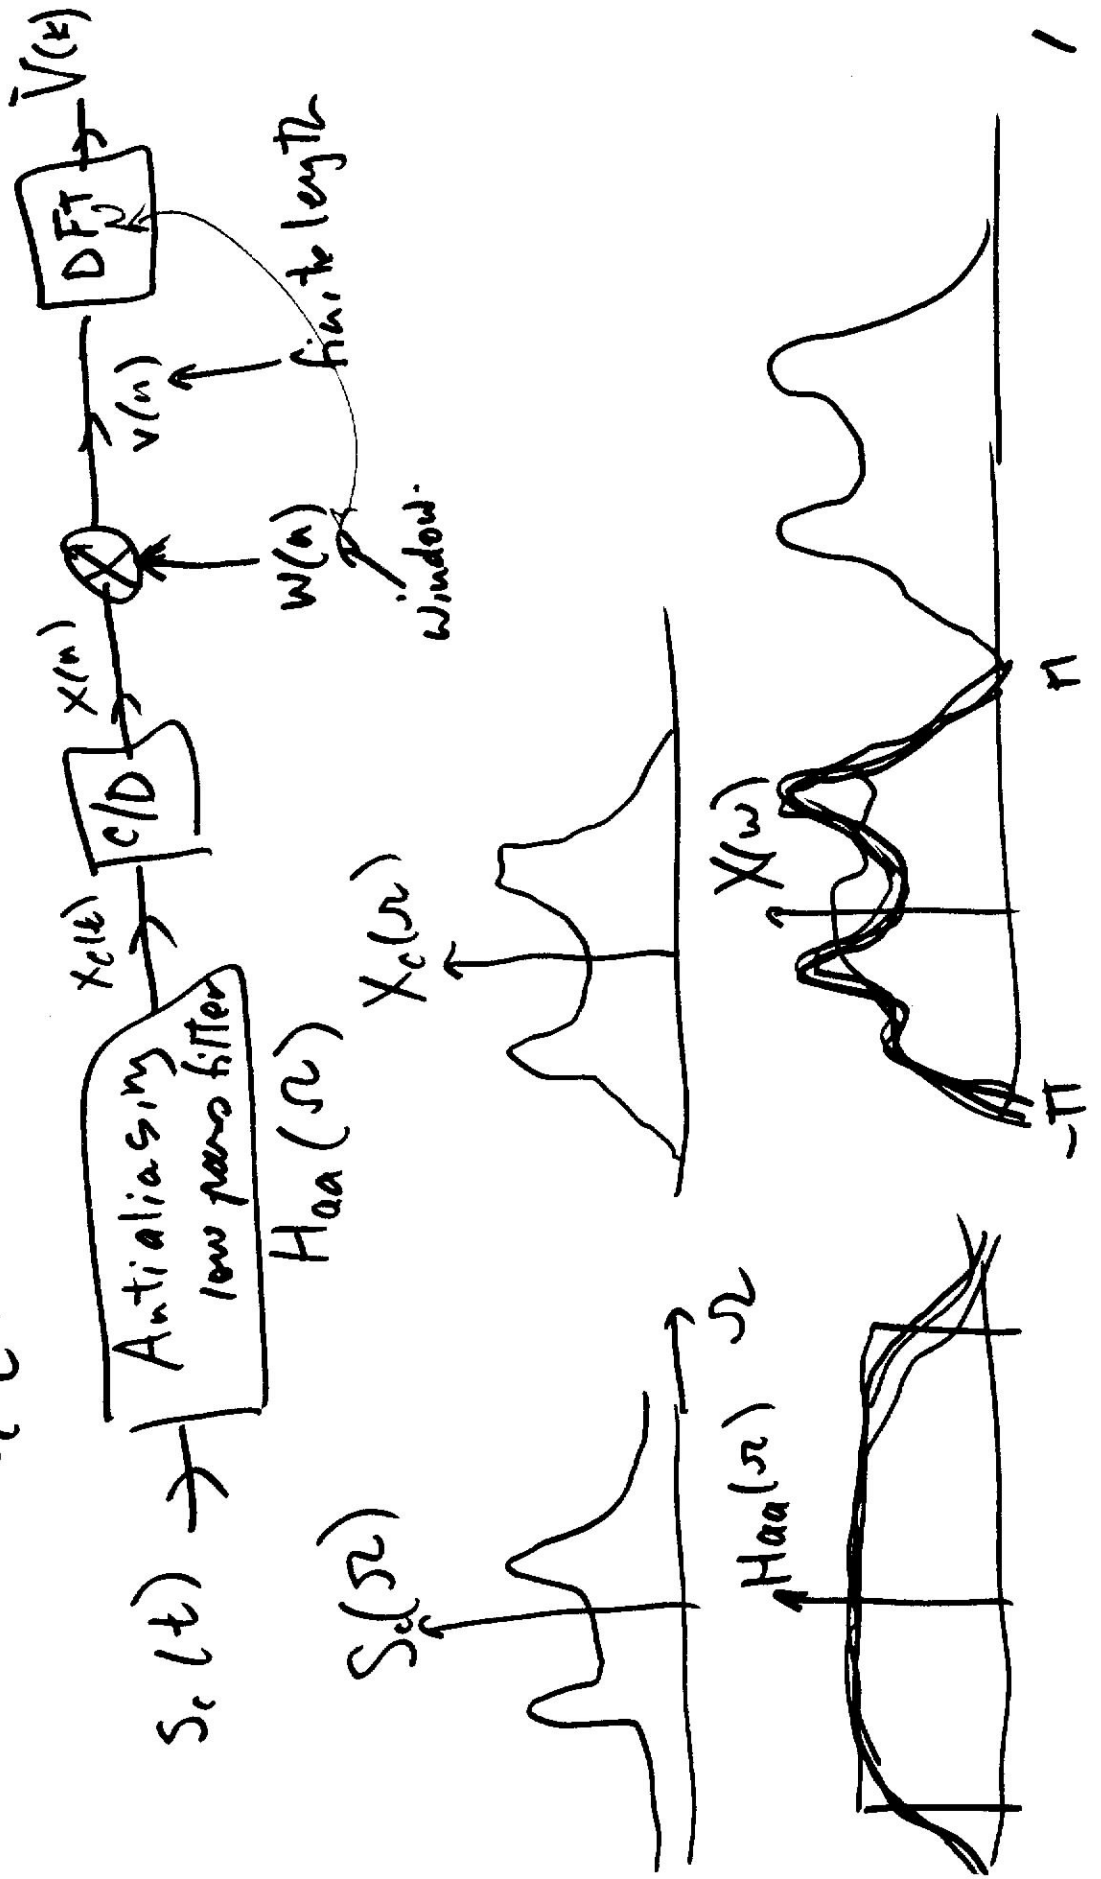 Sc(t)
Antialiasing
low pass filter
Haa(Ω)
Xc(t)
C/D
X(n)
W(n)
window.
V(n)
finite length
DFT
V(k)
Sc(Ω)
Ω
Xc(Ω)
Haa(Ω)
X(w)
-π
π
1